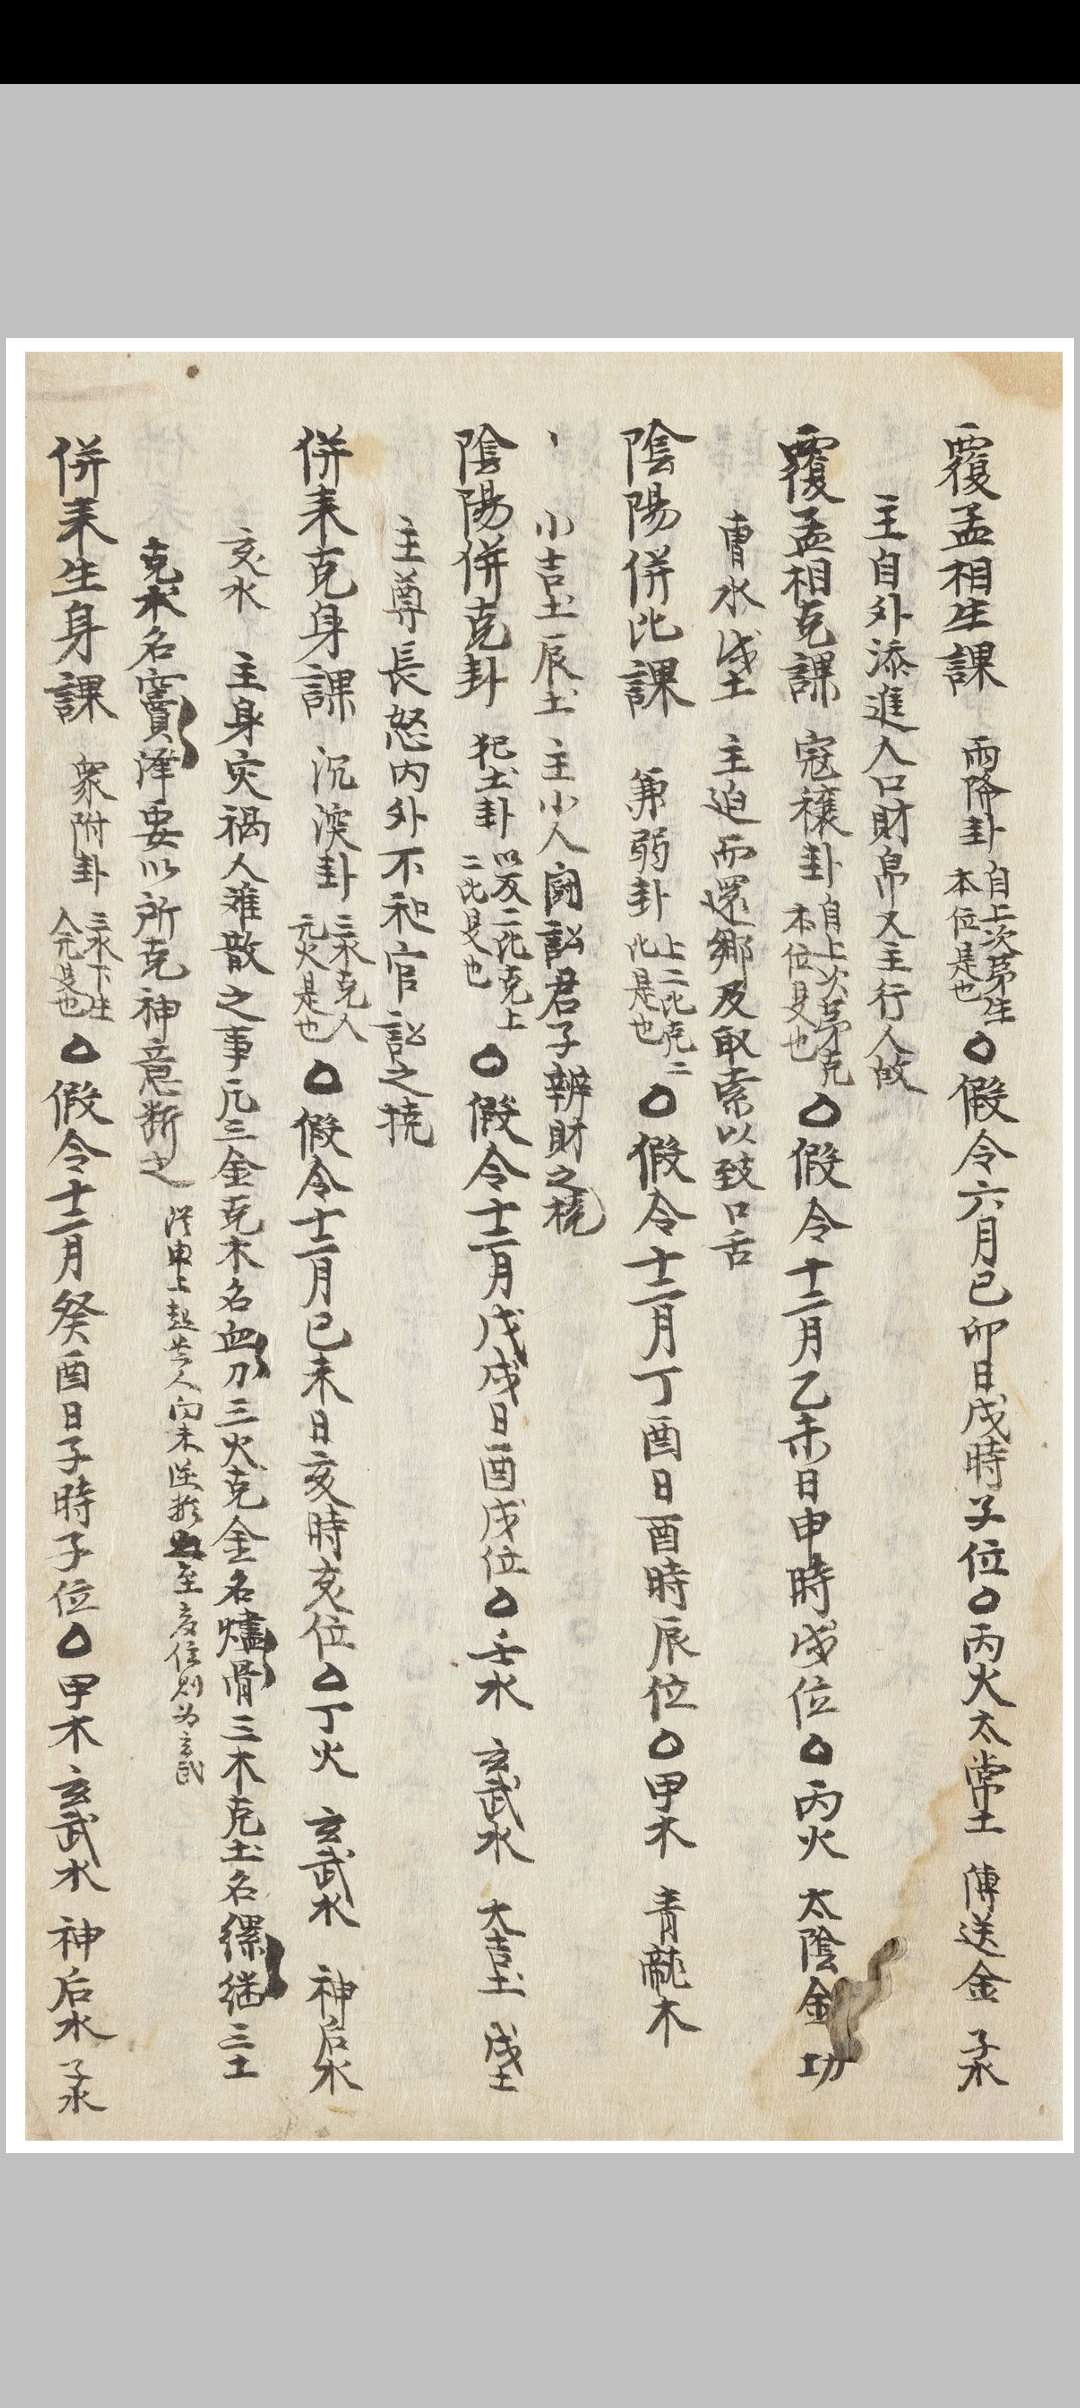 覆孟相生課 雨降卦 自上次第生本位是也 〇假令六月己卯日戌時子位〇丙火太常土 傳送金 子水
主自外添進入口財帛又主行人故
覆孟相克課 寇禳卦 自上次第克本位是也 〇假令十二月乙未日申時戌位〇丙火 太陰金 功
曹水戌土 主迫而還鄉及取索以致口舌
陰陽併比課 弱卦 上二比克二比是也 〇假令十二月丁酉日酉時辰位〇甲木 青龍木
小吉土辰土 主小人鬪訟君子辨財之撓
陰陽併克卦 犯土卦 以反二比克上二比是也 〇假令十二月戊戌日酉戌位〇壬水 玄武水 大吉土 戌土
主尊長怒内外不和官訟之撓
併耒克身課 沉滨卦 三水克人元火是也 〇假令十二月己未日亥時亥位〇丁火 玄武水 神后水
亥水 主身灾禍人难散之事凡三金克木名血刃三火克金名爐骨三木克土名縲绁三土
克水名竇澤要以所克神意断之 申上起 人向未逆 至亥位則为玄武
併耒生身課 衆附卦 三水下生人元是也 〇假令十二月癸酉日子時子位〇甲木 玄武水 神后水 子水